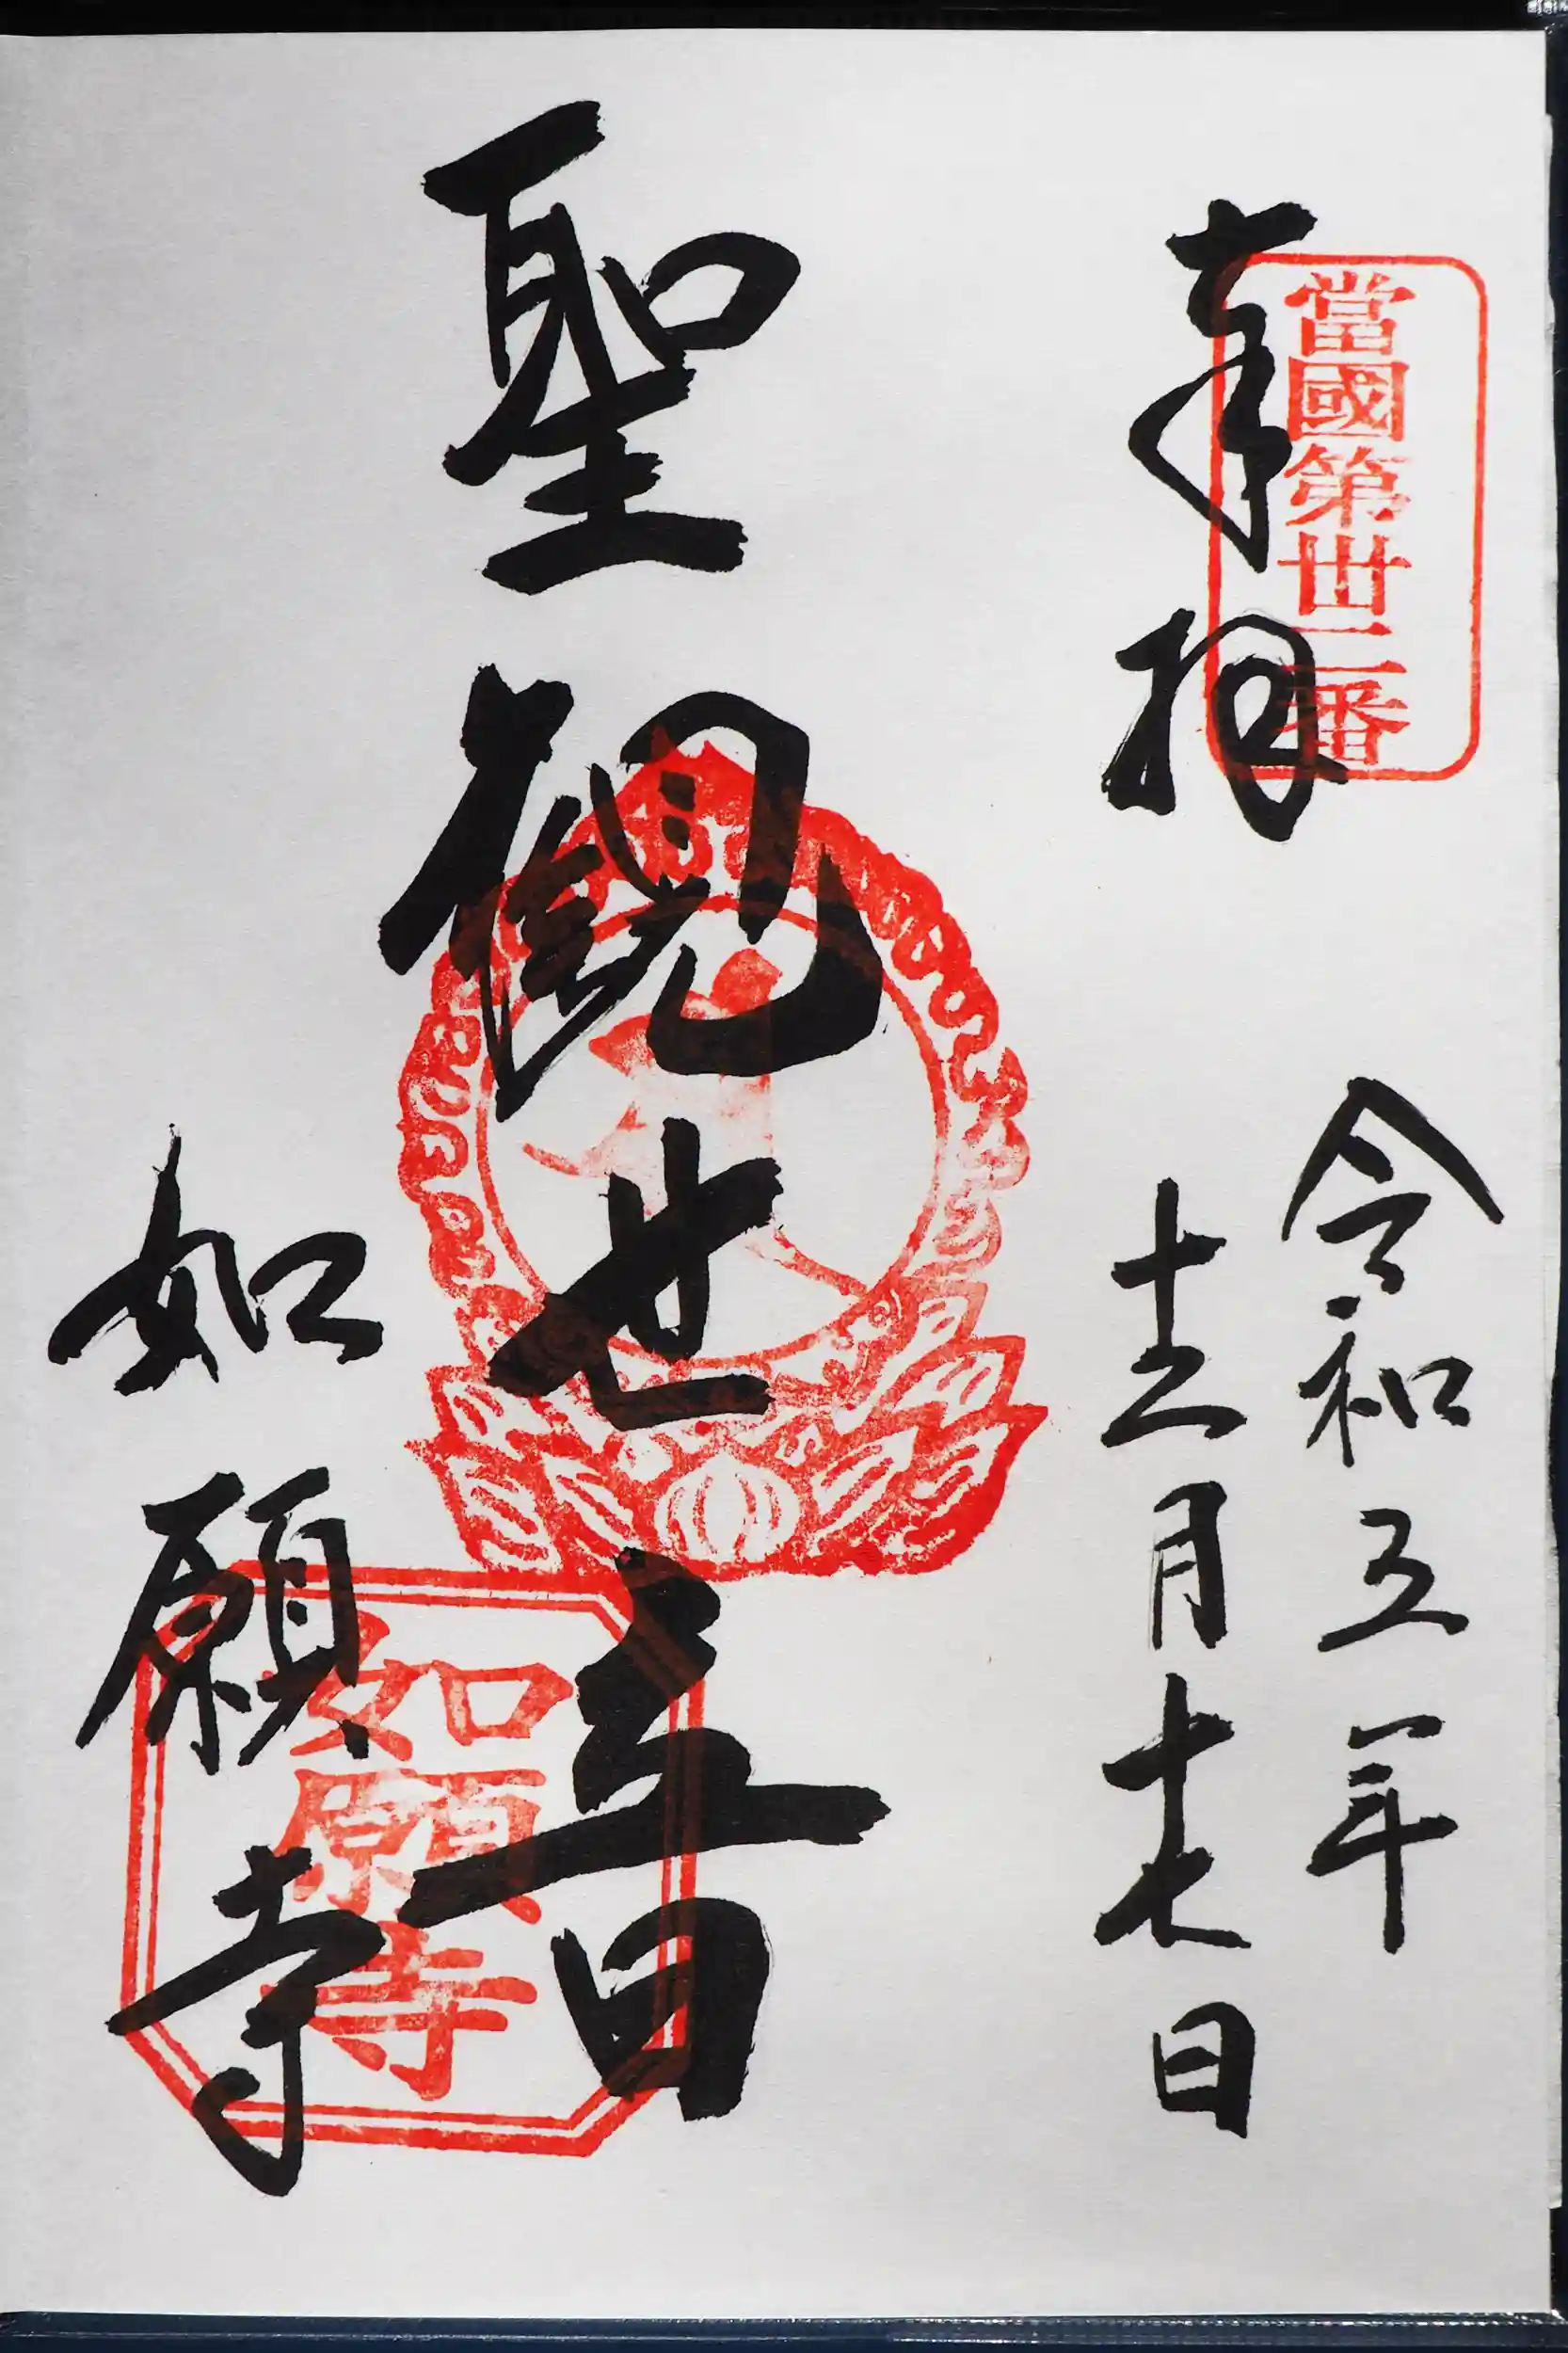 當國第丗二番
奉拝
令和五年
十二月十七日
聖観世音
如願寺
如願寺